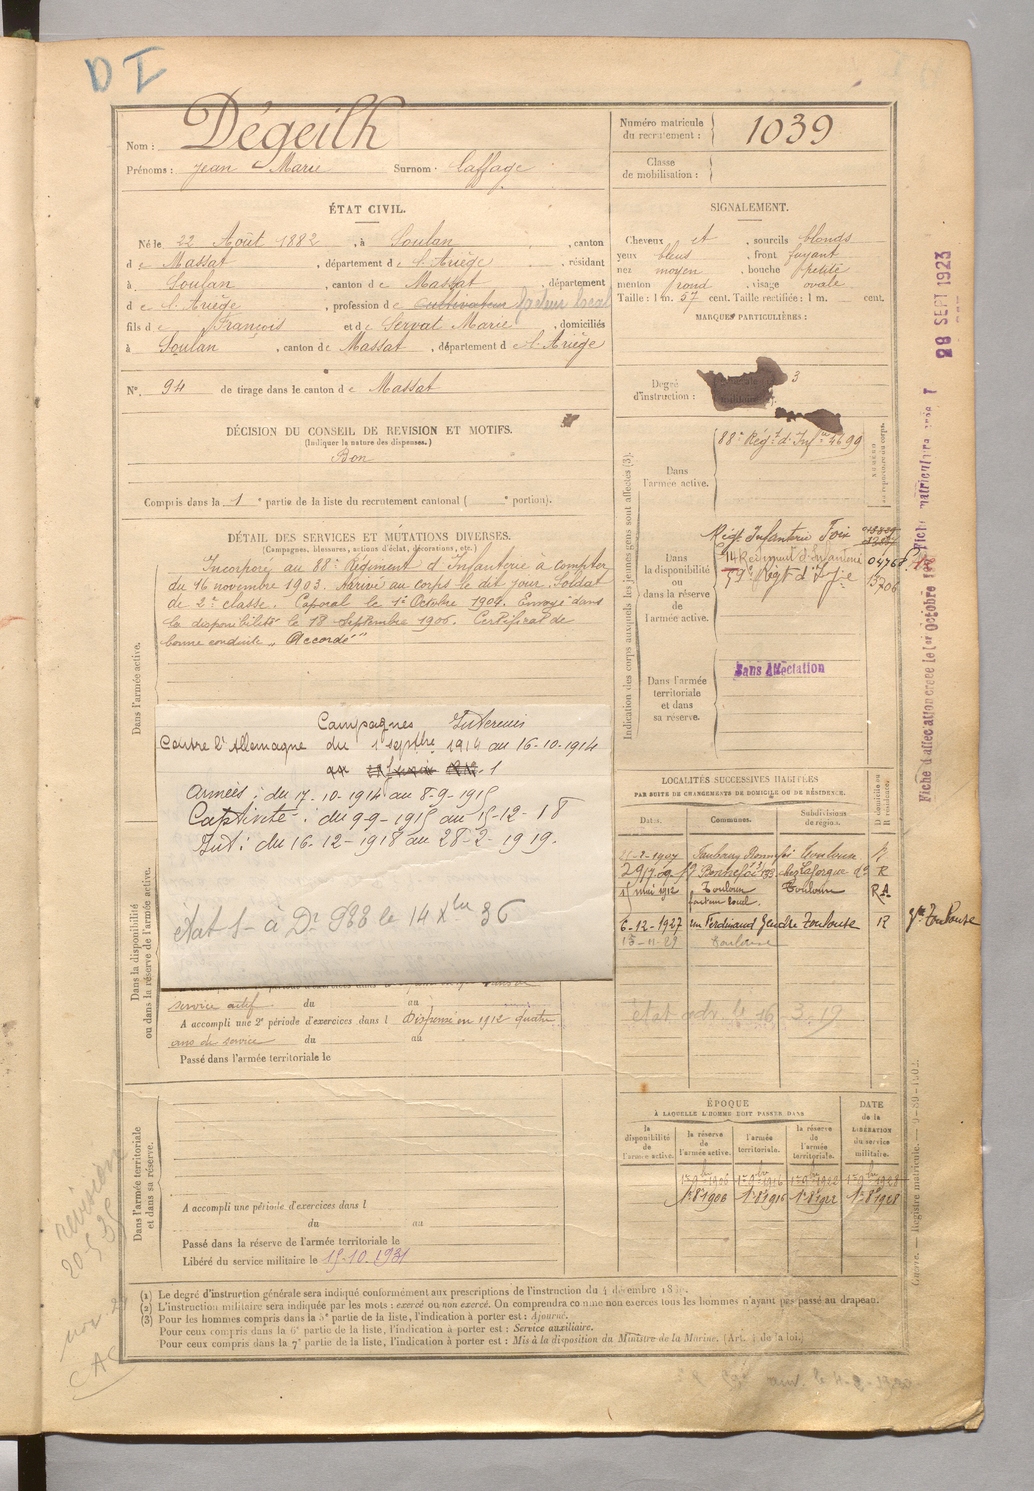 D I
Nom : Dégeilh
Prénoms : Jean Marie Surnom : Caffage
Numéro matricule du recrutement : 1039
Classe de mobilisation :
ÉTAT CIVIL.
Né le 22 Août 1882, à Soulan, canton
de Massat, département de l'Ariège, résidant
à Soulan, canton de Massat, département
de l'Ariège, profession de Cultivateur facteur local
fils de François et de Servat Marie, domiciliés
à Soulan, canton de Massat, département de l'Ariège
N° 94 de tirage dans le canton de Massat
SIGNALEMENT.
Cheveux et, sourcils blonds
yeux bleus, front fuyant
nez moyen, bouche petite
menton rond, visage ovale
Taille : 1 m. 57 cent. Taille rectifiée : 1 m. cent.
MARQUES PARTICULIÈRES :
Degré d'instruction : 3
DÉCISION DU CONSEIL DE REVISION ET MOTIFS.
(Indiquer la nature des dispenses.)
Bon
Compris dans la 1e partie de la liste du recrutement cantonal ( e portion).
DÉTAIL DES SERVICES ET MUTATIONS DIVERSES.
(Campagnes, blessures, actions d'éclat, décorations, etc.)
Dans l'armée active.
Incorporé au 88e Régiment d'Infanterie à compter
du 16 novembre 1903. Arrivé au corps le dit jour. Soldat
de 2e classe. Caporal le 1er Octobre 1904. Envoyé dans
la disponibilité le 18 Septembre 1906. Certificat de
bonne conduite „ Accordé"
Campagnes Intérieur
Contre l'Allemagne du 1 septbre 1914 au 16-10-1914
Armées : du 17-10-1914 au 8-9-1915
Captivité : du 9-9-1915 au 15-12-18
Int : du 16-12-1918 au 28-2-1919.
le 14 Xbre 36
Dans la disponibilité ou dans la réserve de l'armée active.
service actif du au
A accompli une 2e période d'exercices dans l Dispensé en 1912 quatre
ans de service du au
Passé dans l'armée territoriale le
Dans l'armée territoriale et dans sa réserve.
A accompli une période d'exercices dans l
du au
Passé dans la réserve de l'armée territoriale le
Libéré du service militaire le 15-10-1931
Indication des corps auxquels les jeunes gens sont affectés (3).
NUMÉRO au répertoire du corps.
Dans l'armée active.
88e Régt d'Infie 4699
Dans la disponibilité ou dans la réserve de l'armée active.
Régt Infanterie Foix
14 Régiment d'Infanterie 04768
59e Régt d'Infie
Dans l'armée territoriale et dans sa réserve.
Sans Affectation
LOCALITÉS SUCCESSIVES HABITÉES
PAR SUITE DE CHANGEMENTS DE DOMICILE OU DE RÉSIDENCE.
Dates. Communes. Subdivisions de région. D domicile ou R résidence.
Faubourg Bonnefoi Toulouse R
Bonnefoi 133 chez Laforgue do R
15 mai 1912 Toulouse Toulouse R
facteur local.
6-12-1927 rue Ferdinand Toulouse R
13-11-29 Toulouse
état adr le 16-3-17
ÉPOQUE
À LAQUELLE L'HOMME DOIT PASSER DANS
la disponibilité de l'armée active. la réserve de l'armée active. l'armée territoriale. la réserve de l'armée territoriale. DATE de la LIBÉRATION du service militaire.
1er 9bre 1906 1er 9bre 1916 1er 9bre 1922 1er 9bre 1928
1er 8bre 1906 1er 8bre 1916 1er 8bre 1922 1er 8bre 1928
28 SEPT 1923
Fiche d'affectation créée le 1er octobre
Fiche matriculaire créée
Toulouse
Guerre. — Registre matricule. —
revision
(1) Le degré d'instruction générale sera indiqué conformément aux prescriptions de l'instruction du 4 décembre
(2) L'instruction militaire sera indiquée par les mots : exercé ou non exercé. On comprendra comme non exercés tous les hommes n'ayant pas passé au drapeau.
(3) Pour les hommes compris dans la 5e partie de la liste, l'indication à porter est : Ajourné.
Pour ceux compris dans la 6e partie de la liste, l'indication à porter est : Service auxiliaire.
Pour ceux compris dans la 7e partie de la liste, l'indication à porter est : Mis à la disposition du Ministre de la Marine. (Art. 4 de la loi.)